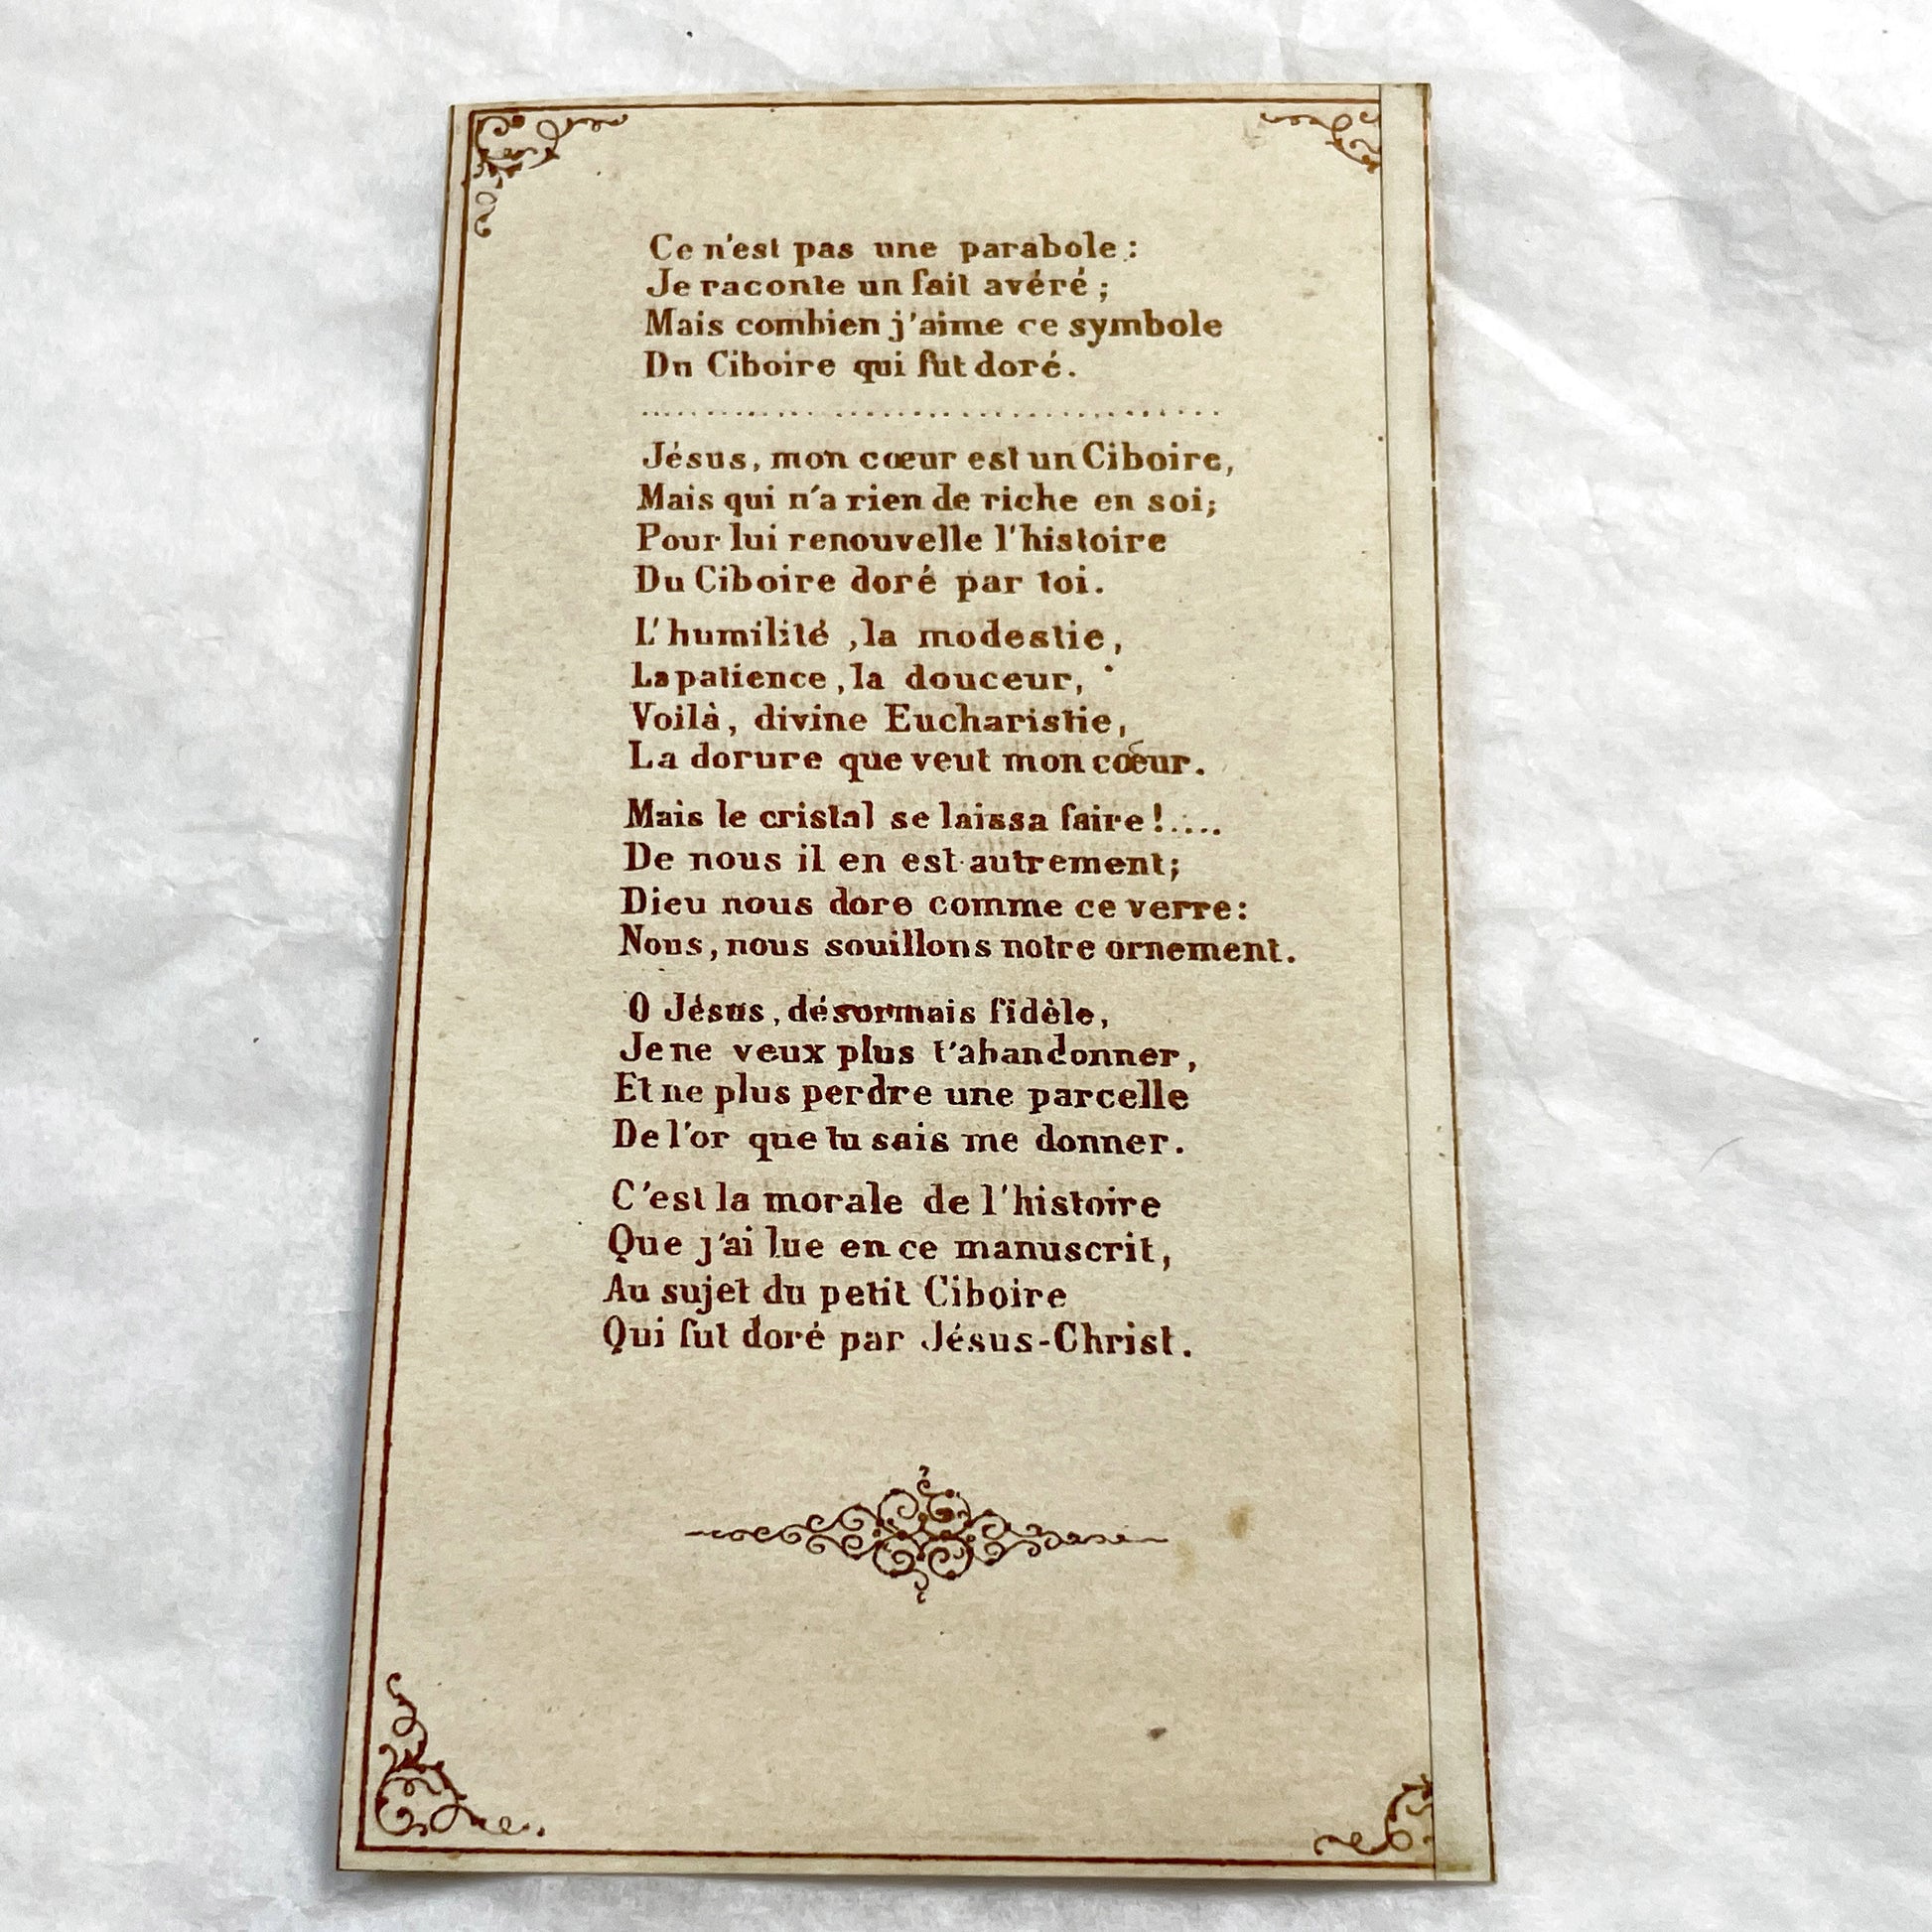 Ce n'est pas une parabole :
Je raconte un fait avéré ;
Mais combien j'aime ce symbole
Du Ciboire qui fut doré.
........................................
Jésus, mon cœur est un Ciboire,
Mais qui n'a rien de riche en soi;
Pour lui renouvelle l'histoire
Du Ciboire doré par toi.
L'humilité , la modestie,
La patience , la douceur,
Voilà, divine Eucharistie,
La dorure que veut mon cœur.
Mais le cristal se laissa faire !....
De nous il en est autrement;
Dieu nous dore comme ce verre:
Nous, nous souillons notre ornement.
O Jésus, désormais fidèle,
Je ne veux plus t'abandonner,
Et ne plus perdre une parcelle
De l'or que tu sais me donner.
C'est la morale de l'histoire
Que j'ai lue en ce manuscrit,
Au sujet du petit Ciboire
Qui fut doré par Jésus-Christ.